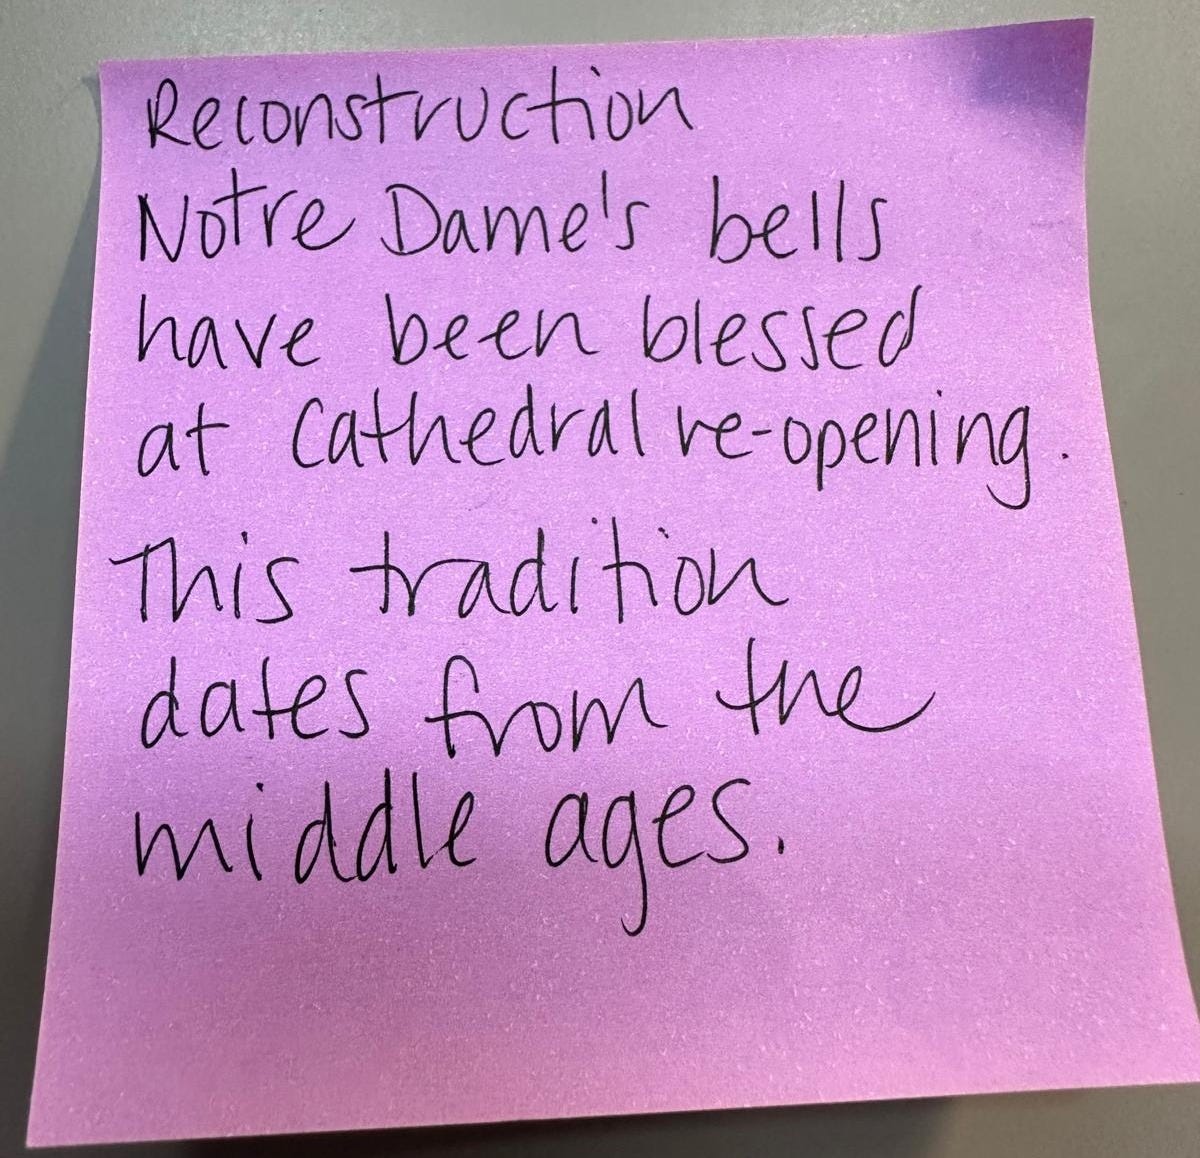 Reconstruction
Notre Dame's bells
have been blessed
at Cathedral re-opening.
This tradition
dates from the
middle ages.